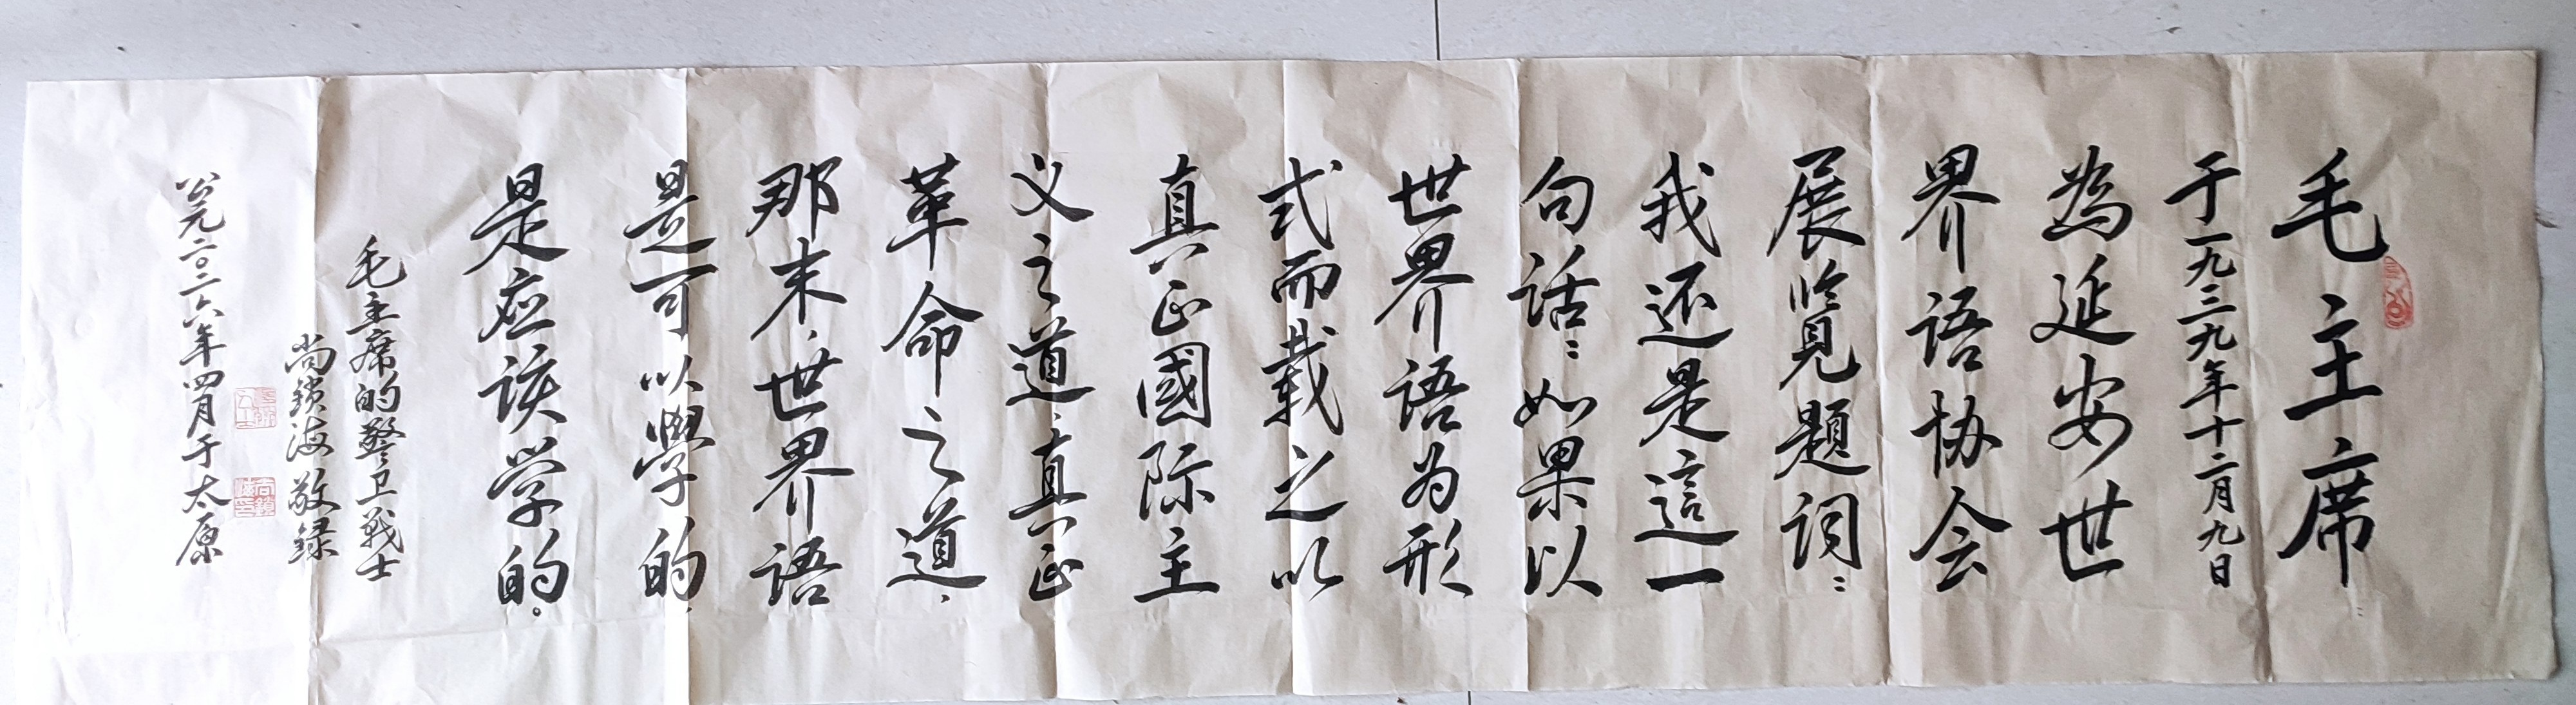 毛主席
于一九三九年十二月九日
為延安世
界语协会
展览題词：
我还是這一
句话：如果以
世界语为形
式而载之以
真正國际主
义之道、真正
革命之道，
那末，世界语
是可以學的，
是应该学的。
毛主席的警卫战士
尚锁海敬録
公元二〇二六年四月于太原